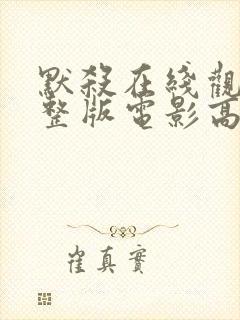 默殺在綫觀
整版電影高
崔真實